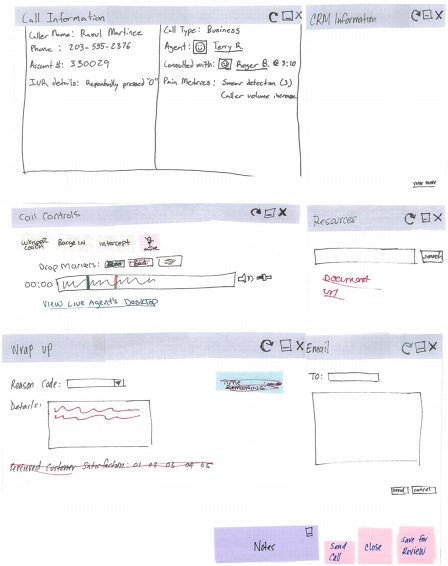 Call Information
CRM Information
Caller Name: Raoul Martinez
Phone: 203-555-2376
Account #: 330029
IVR details: Repeatedly pressed "0"
Call Type: Business
Agent: Terry R.
Consulted with: Roger B. @ 3:10
Pain Metrics: Swear detection (3)
Caller volume increase
view more
Call Controls
Resources
Whisper Coach
Barge IN
intercept
Drop Markers:
00:00
View Live Agent's Desktop
search
Document
url
Wrap up
Email
Reason Code:
Time Remaining:
Details:
Perceived Customer Satisfaction: 01 02 03 04 05
TO:
Send
Cancel
Notes
Send Call
Close
Save for Review